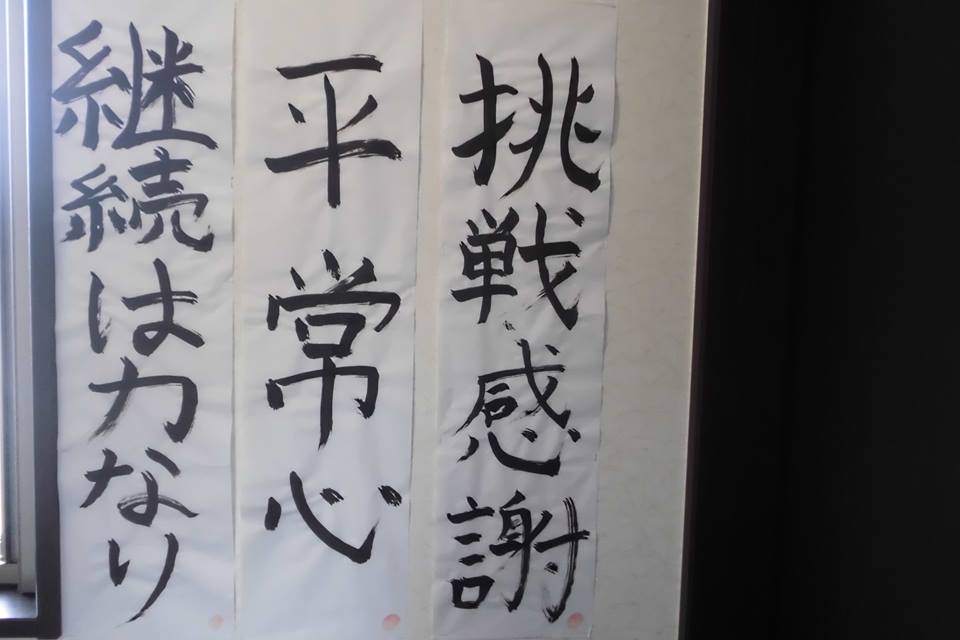 挑戦感謝
平常心
継続は力なり